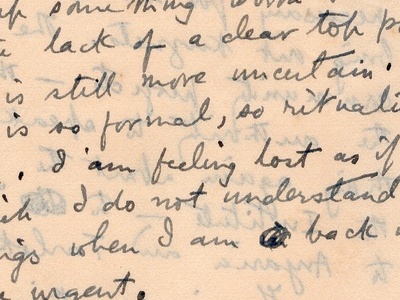 up something
lack of a clear top
is still more uncertain.
is so formal, so rituali
, I am feeling lost as if
I do not understand
ngs when I am back
urgent.